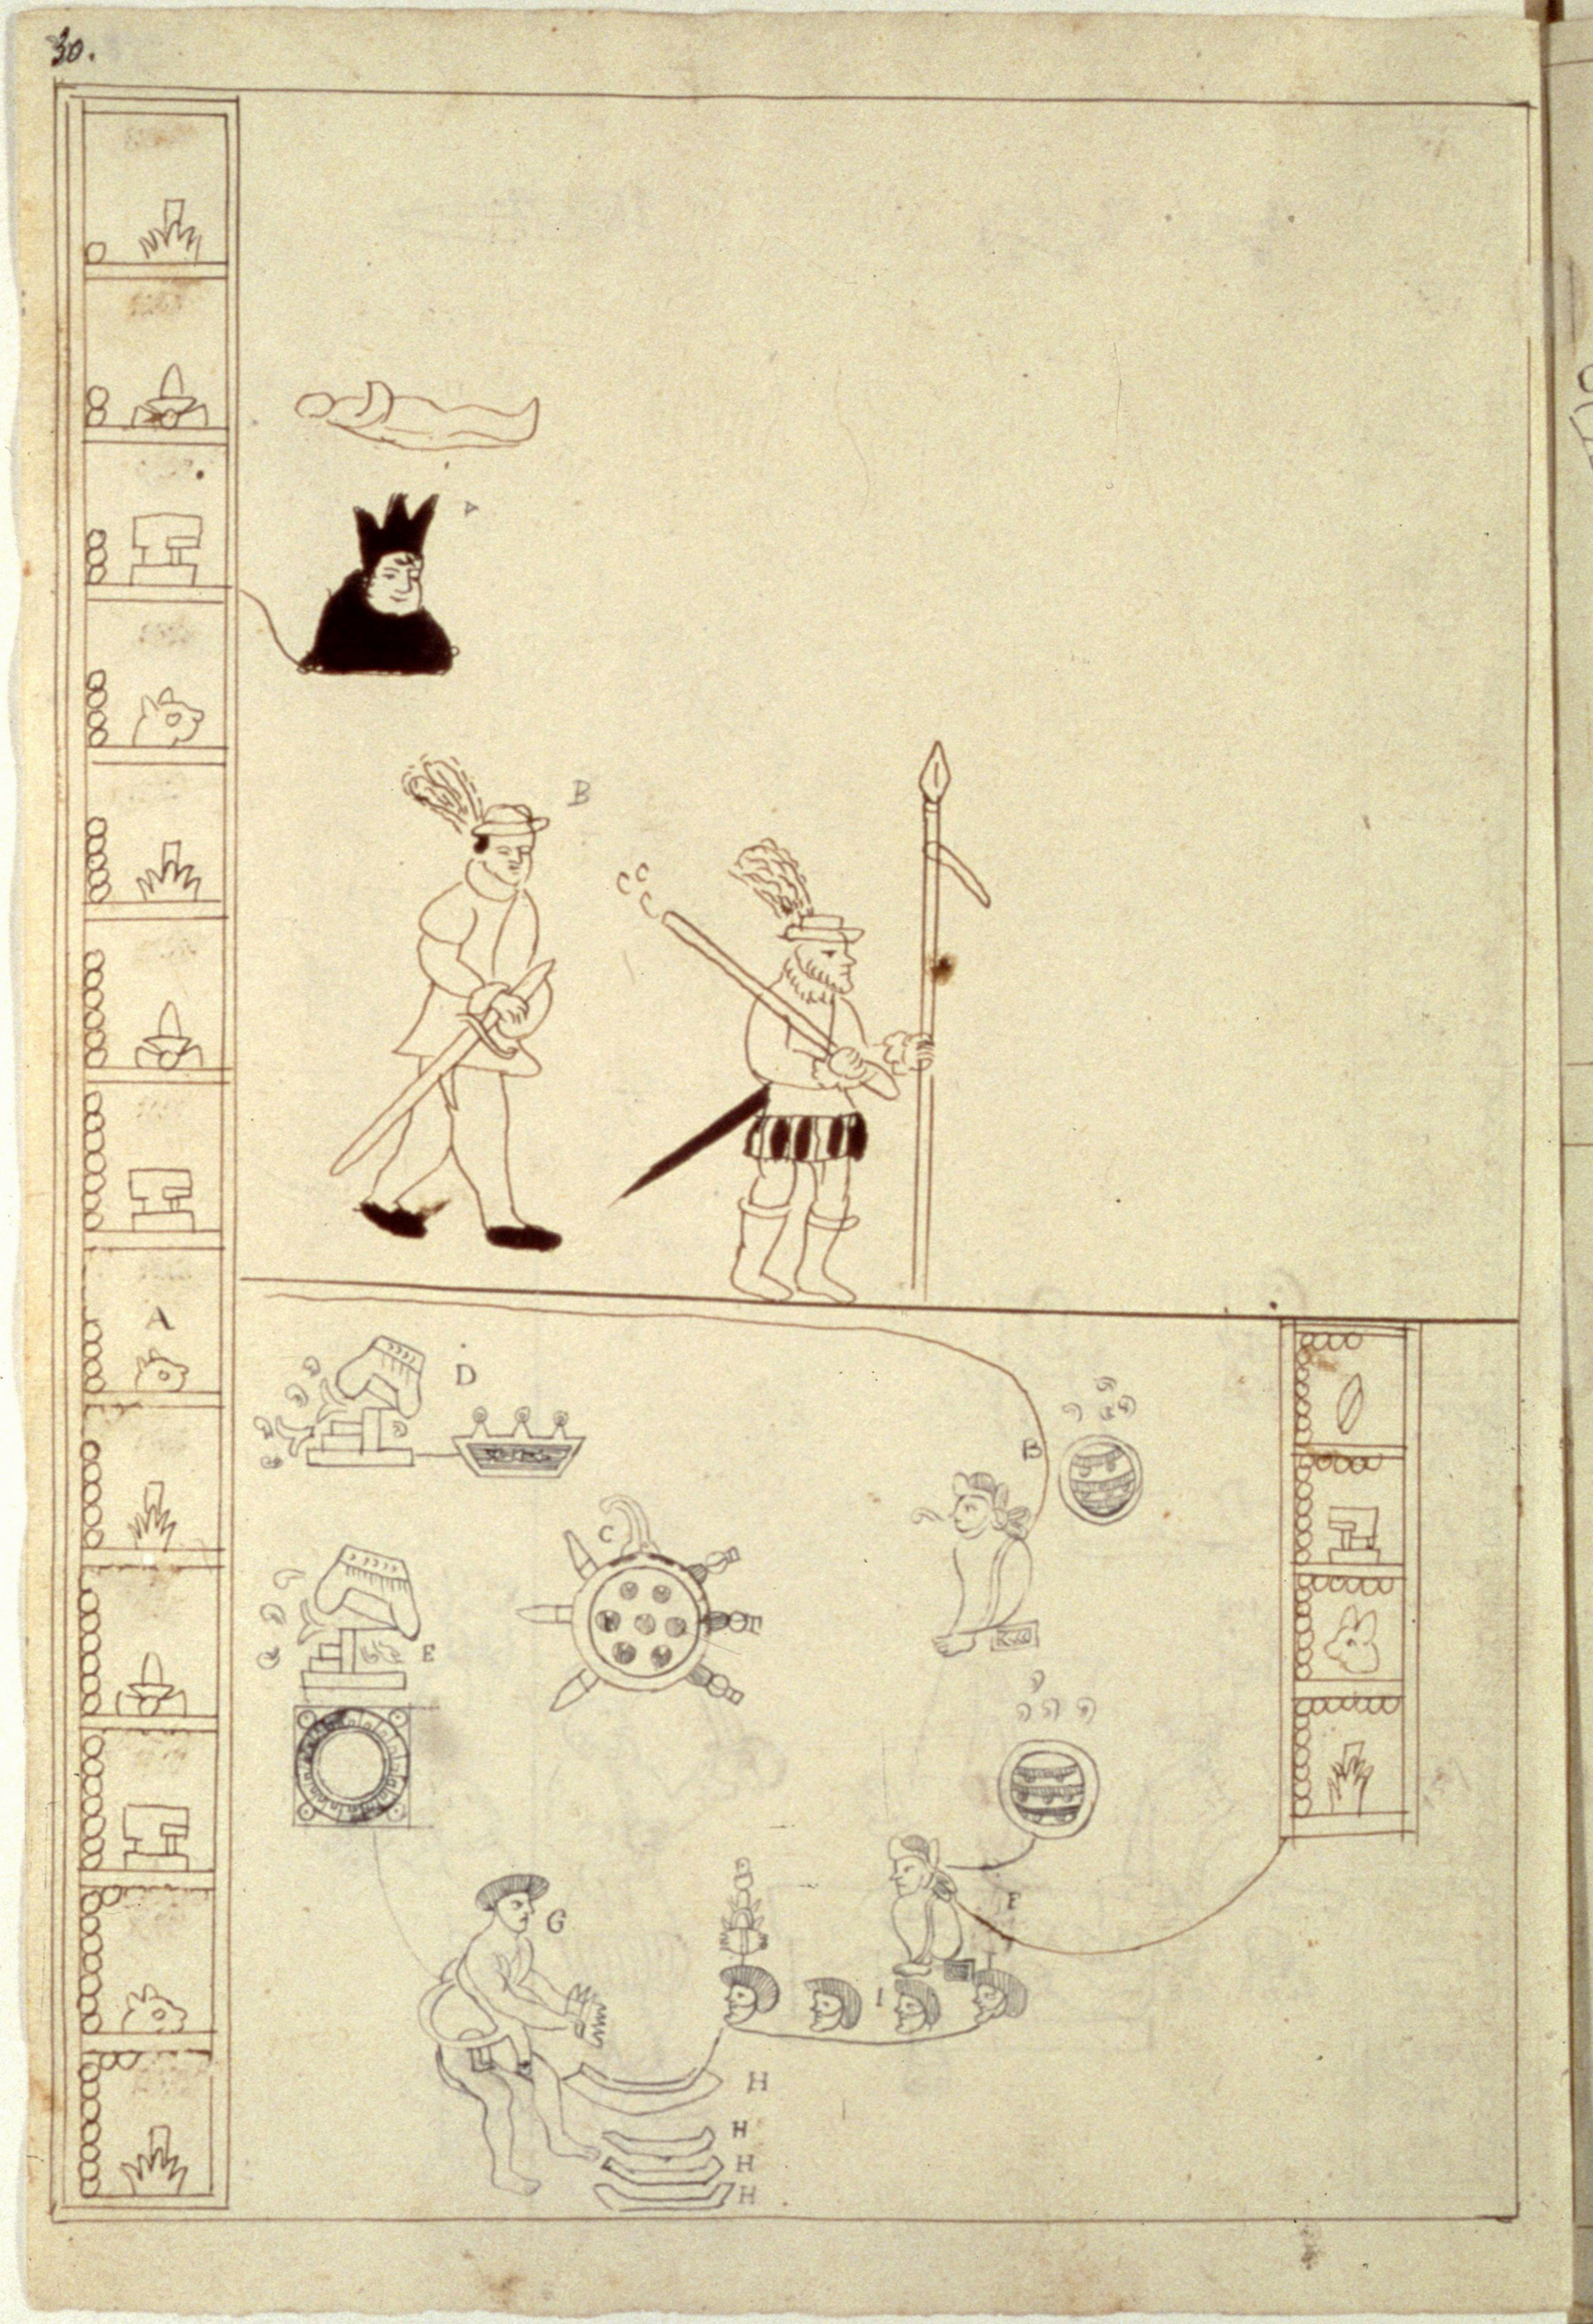 30.
A
B
A
D
B
C
E
F
G
I
H
H
H
H